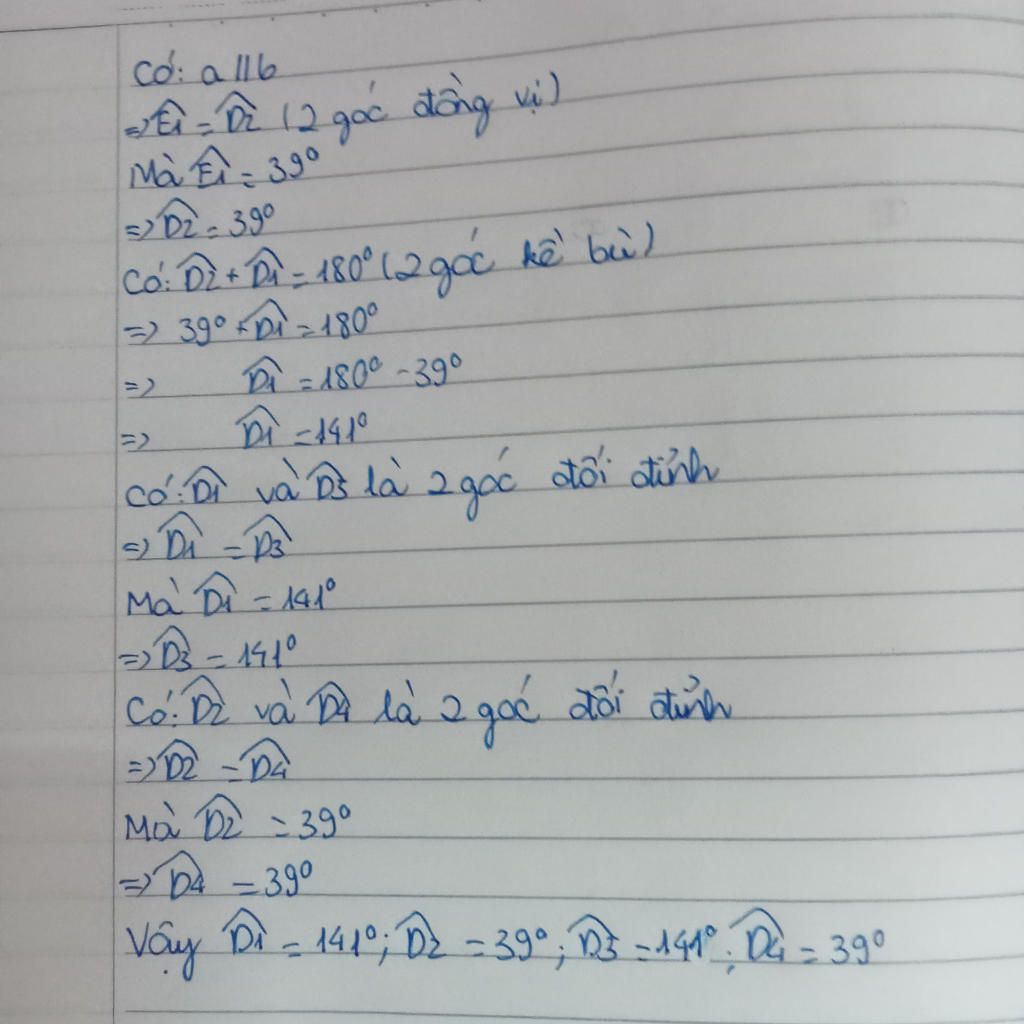 Có: a // b
=> Ê1 = D̂2 (2 góc đồng vị)
Mà Ê1 = 39°
=> D̂2 = 39°
Có: D̂2 + D̂1 = 180° (2 góc kề bù)
=> 39° + D̂1 = 180°
=> D̂1 = 180° - 39°
=> D̂1 = 141°
Có: D̂1 và D̂3 là 2 góc đối đỉnh
=> D̂1 = D̂3
Mà D̂1 = 141°
=> D̂3 = 141°
Có: D̂2 và D̂4 là 2 góc đối đỉnh
=> D̂2 = D̂4
Mà D̂2 = 39°
=> D̂4 = 39°
Vậy D̂1 = 141°; D̂2 = 39°; D̂3 = 141°; D̂4 = 39°